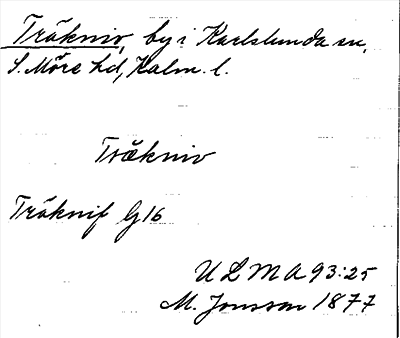 Träkniv, by i Karlslunda sn,
S. Möre hd, Kalm. l.
Träkniv
Träknif G16
ULMA 93:25
M. Jonsson 1877